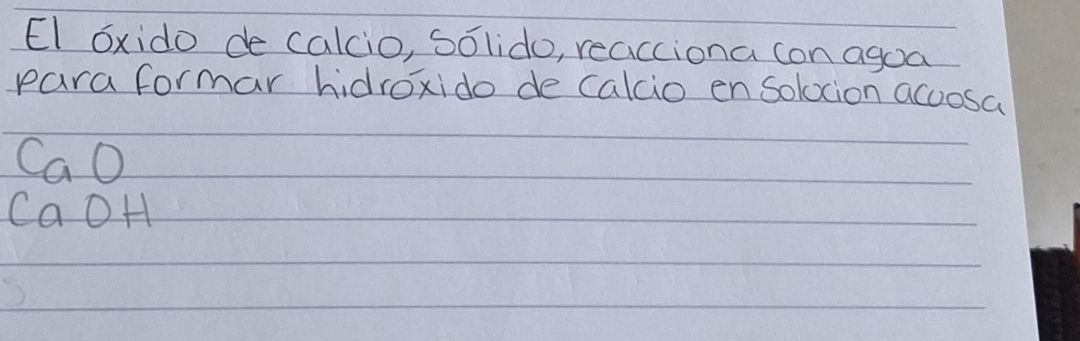 El óxido de calcio, sólido, reacciona con agoa
para formar hidróxido de calcio en solocion acuosa
CaO
CaOH